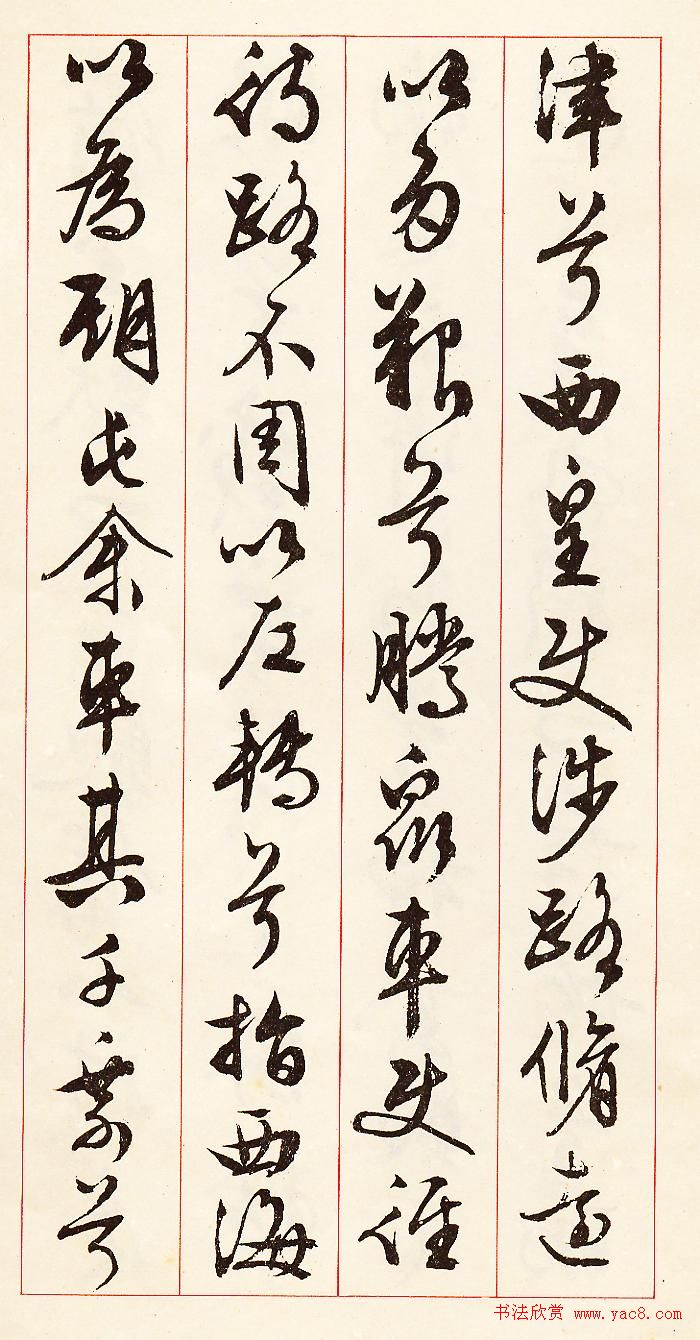 津兮西皇使涉路脩遠
以多艱兮騰眾車使徑
待路不周以左轉兮指西海
以為期屯余車其千乘兮
书法欣赏 www.yac8.com